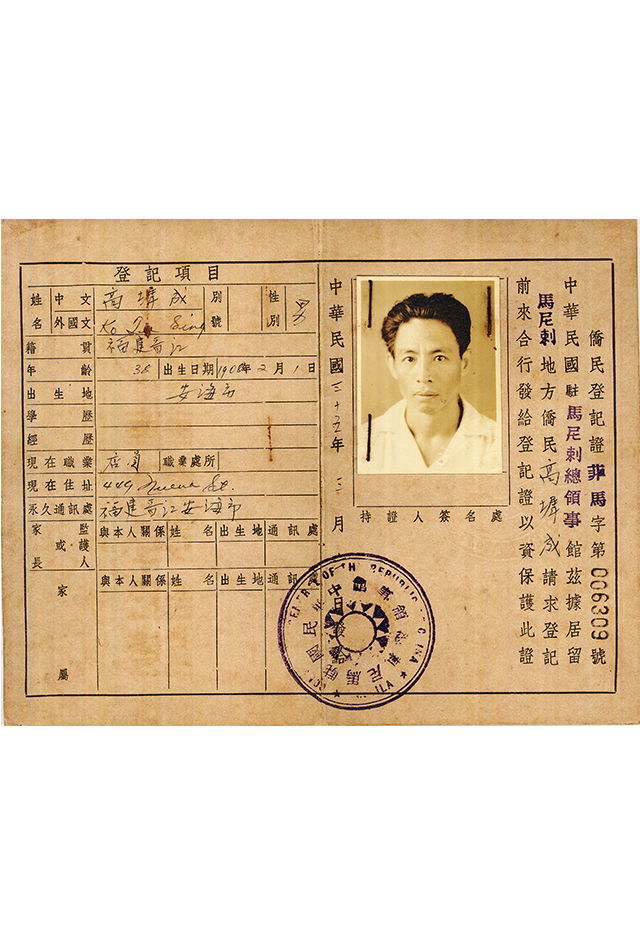 僑民登記證 菲馬字第 006309 號
中華民國駐馬尼刺總領事館茲據居留
馬尼刺地方僑民高墀成請求登記
前來合行發給登記證以資保護此證
持證人簽名處
中華民國三十五年 月
登記項目
姓名 中文 高墀成 別號 性別 男
外國文 Ko Sing
籍貫 福建晋江
年齡 38 出生日期 1908年2月1日
出生地 安海市
學歷
經歷
現在職業 店員 職業處所
現在住址 449 Nueva St.
永久通訊處 福建晋江安海市
家長或監護人 與本人關係 姓名 出生地 通訊處
家屬 與本人關係 姓名 出生地 通訊處